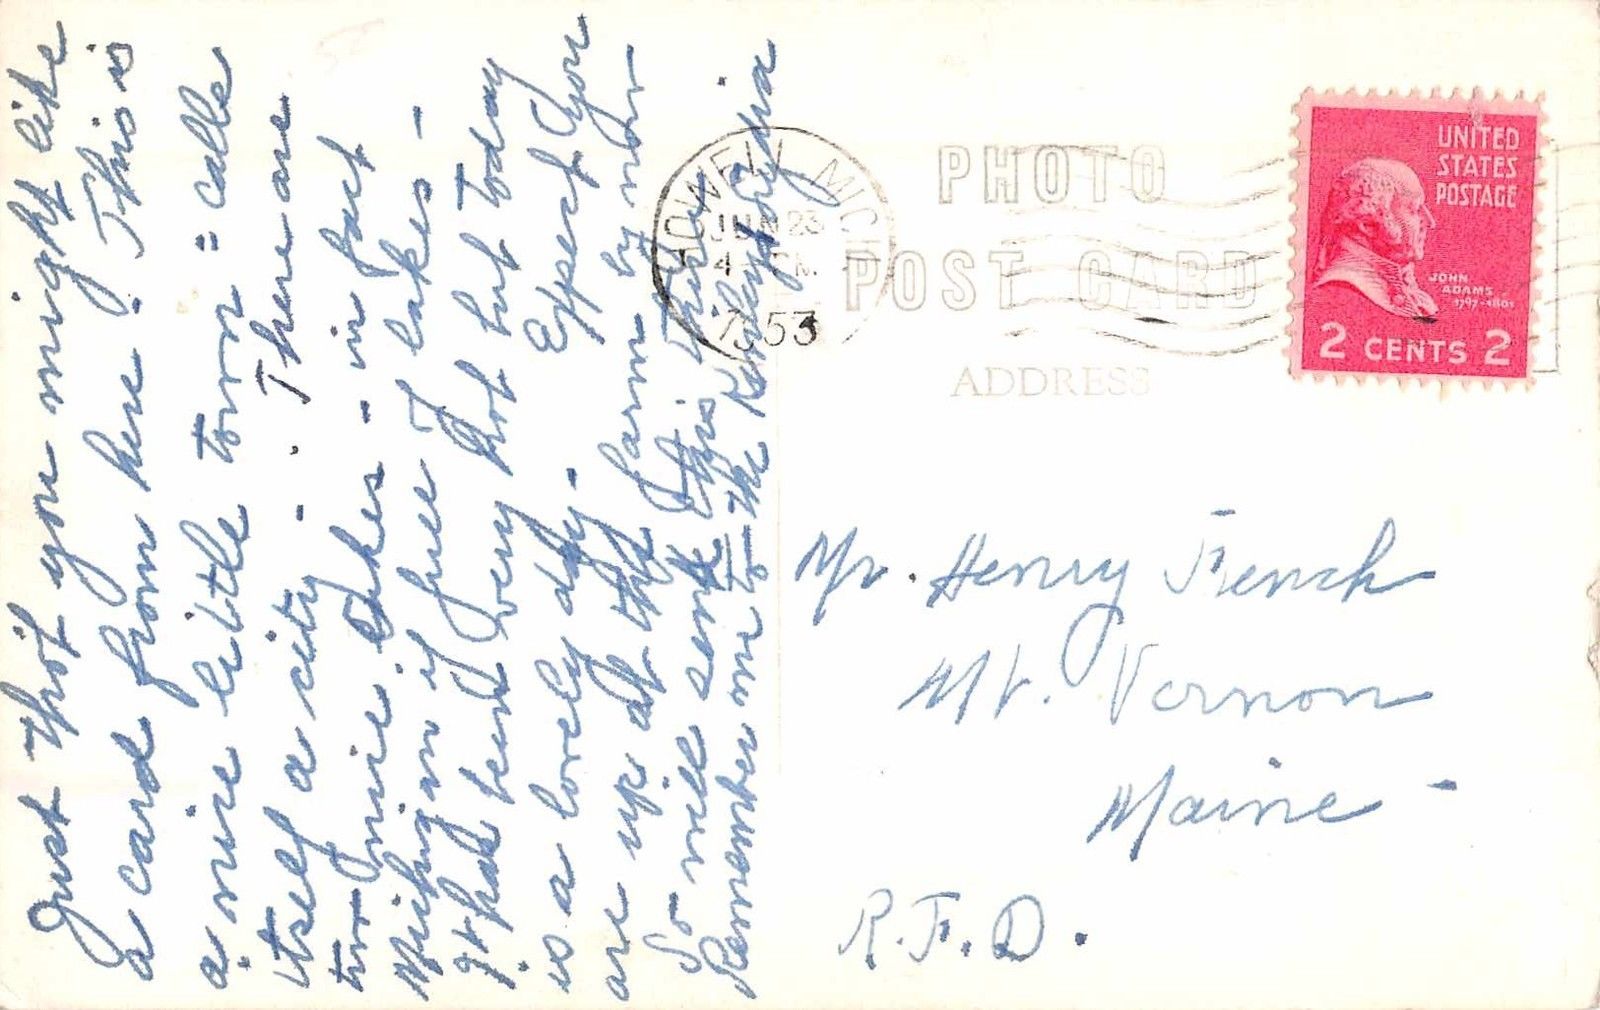 Just tho't you might like
a card from here. This is
a nice little town = calls
itself a city. There are
two nice lakes - in fact
Michigan is full of lakes -
It has been very hot but today
is a lovely day. Expect you
are up at the farm by now
So will send this there
Remember me to the
HOWELL MICH
JUN 23
4 PM
1953
PHOTO
POST CARD
ADDRESS
UNITED
STATES
POSTAGE
JOHN
ADAMS
1797-1801
2 CENTS 2
Mr. Henry French
Mt. Vernon
Maine -
R.F.D.